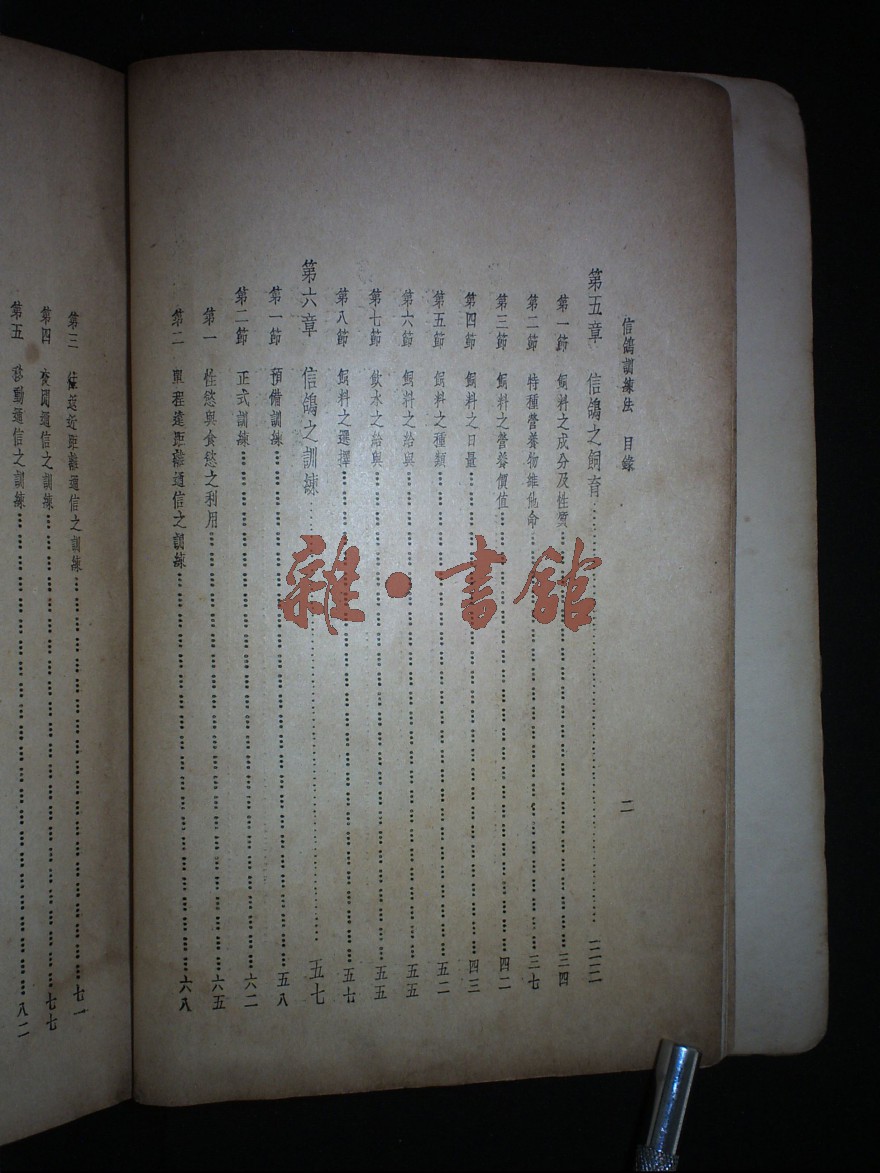 信鴿訓練法 目錄
二
第五章 信鴿之飼育……三三
第一節 飼料之成分及性質……三四
第二節 特種營養物維他命……三七
第三節 飼料之營養價值……四二
第四節 飼料之日量……四三
第五節 飼料之種類……五二
第六節 飼料之給與……五五
第七節 飲水之給與……五五
第八節 飼料之選擇……五七
第六章 信鴿之訓練……五七
第一節 預備訓練……五八
第二節 正式訓練……六二
第一 性慾與食慾之利用……六五
第二 單程遠距離通信之訓練……六八
第三 往返近距離通信之訓練……七一
第四 夜間通信之訓練……七七
第五 移動通信之訓練……八二
雜·書館